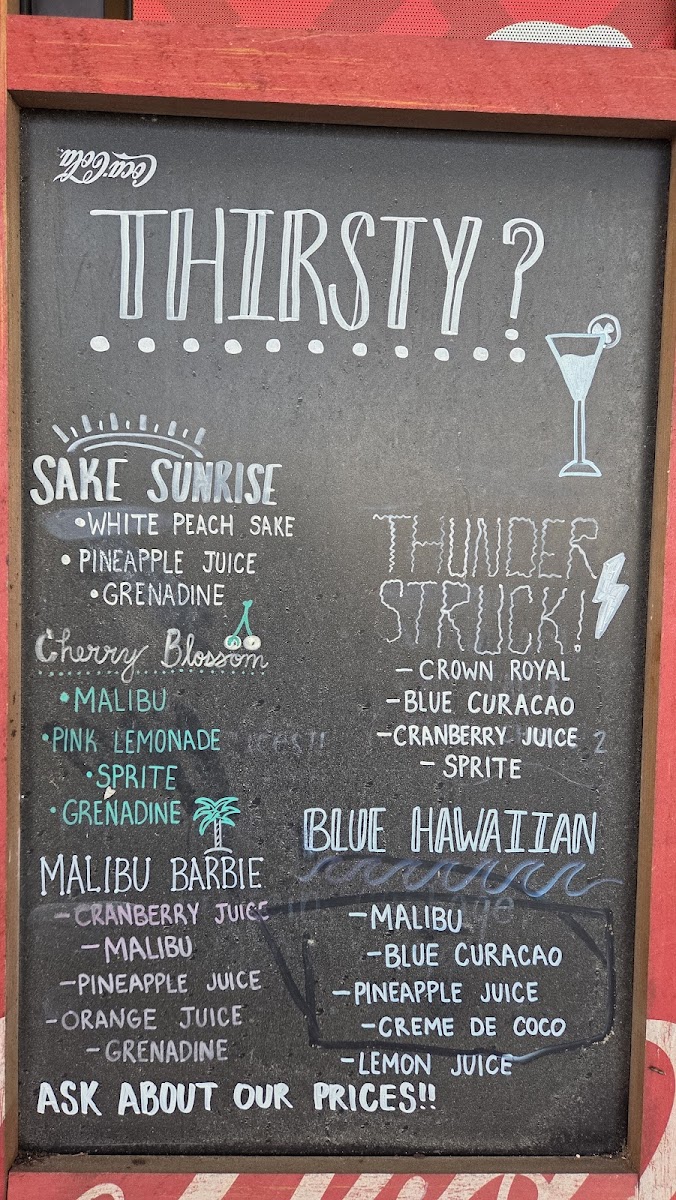 Coca-Cola
THIRSTY?
SAKE SUNRISE
• WHITE PEACH SAKE
• PINEAPPLE JUICE
• GRENADINE
Cherry Blossom
• MALIBU
• PINK LEMONADE
• SPRITE
• GRENADINE
MALIBU BARBIE
- CRANBERRY JUICE
- MALIBU
- PINEAPPLE JUICE
- ORANGE JUICE
- GRENADINE
THUNDER
STRUCK!
- CROWN ROYAL
- BLUE CURACAO
- CRANBERRY JUICE
- SPRITE
BLUE HAWAIIAN
- MALIBU
- BLUE CURACAO
- PINEAPPLE JUICE
- CREME DE COCO
- LEMON JUICE
ASK ABOUT OUR PRICES!!